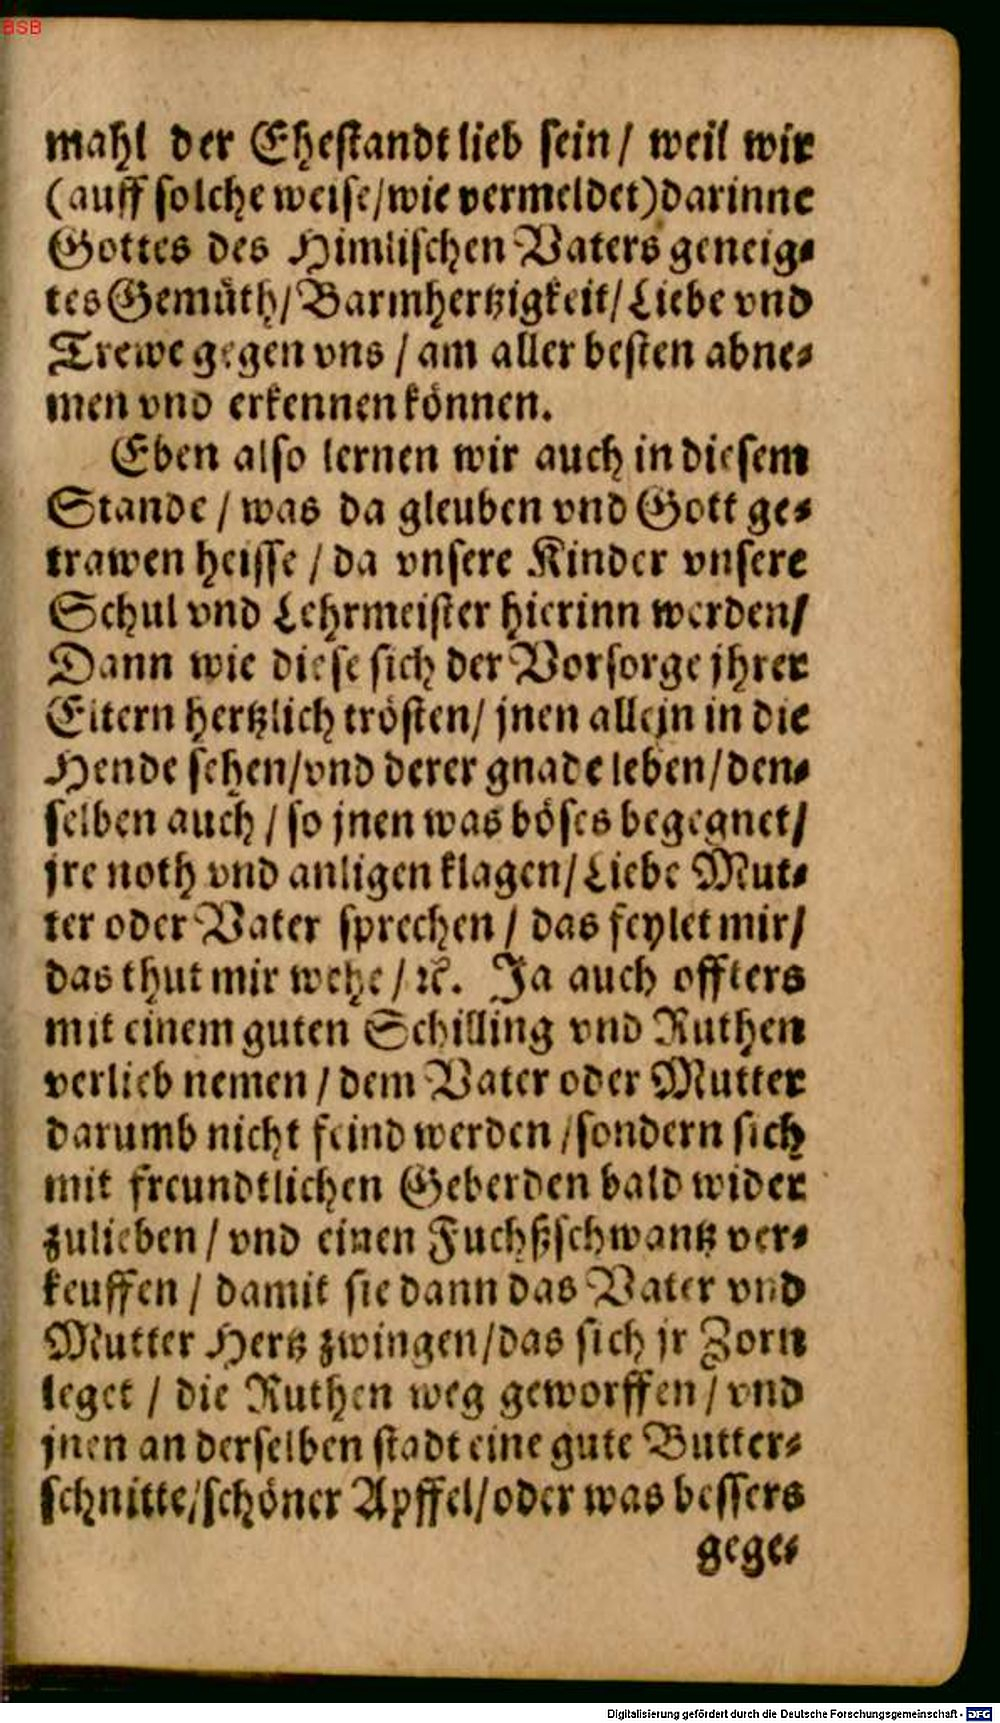 BSB
mahl der Ehestandt lieb sein / weil wir
(auff solche weise / wie vermeldet) darinne
Gottes des Himlischen Vaters geneig-
tes Gemüth / Barmhertzigkeit / Liebe vnd
Trewe gegen vns / am aller besten abne-
men vnd erkennen können.
Eben also lernen wir auch in diesem
Stande / was da gleuben vnd Gott ge-
trawen heisse / da vnsere Kinder vnsere
Schul vnd Lehrmeister hierinn werden /
Dann wie diese sich der Vorsorge jhrer
Eltern hertzlich trösten / jnen allejn in die
Hende sehen / vnd derer gnade leben / den-
selben auch / so jnen was böses begegnet /
jre noth vnd anligen klagen / Liebe Mut-
ter oder Vater sprechen / das feylet mir /
das thut mir wehe / ꝛc. Ja auch offters
mit einem guten Schilling vnd Ruthen
verlieb nemen / dem Vater oder Mutter
darumb nicht feind werden / sondern sich
mit freundtlichen Geberden bald wider
zulieben / vnd einen Fuchßschwantz ver-
keuffen / damit sie dann das Vater vnd
Mutter Hertz zwingen / das sich jr Zorn
leget / die Ruthen weg geworffen / vnd
jnen an derselben stadt eine gute Butter-
schnitte / schöner Apffel / oder was bessers
gege-
Digitalisierung gefördert durch die Deutsche Forschungsgemeinschaft - DFG